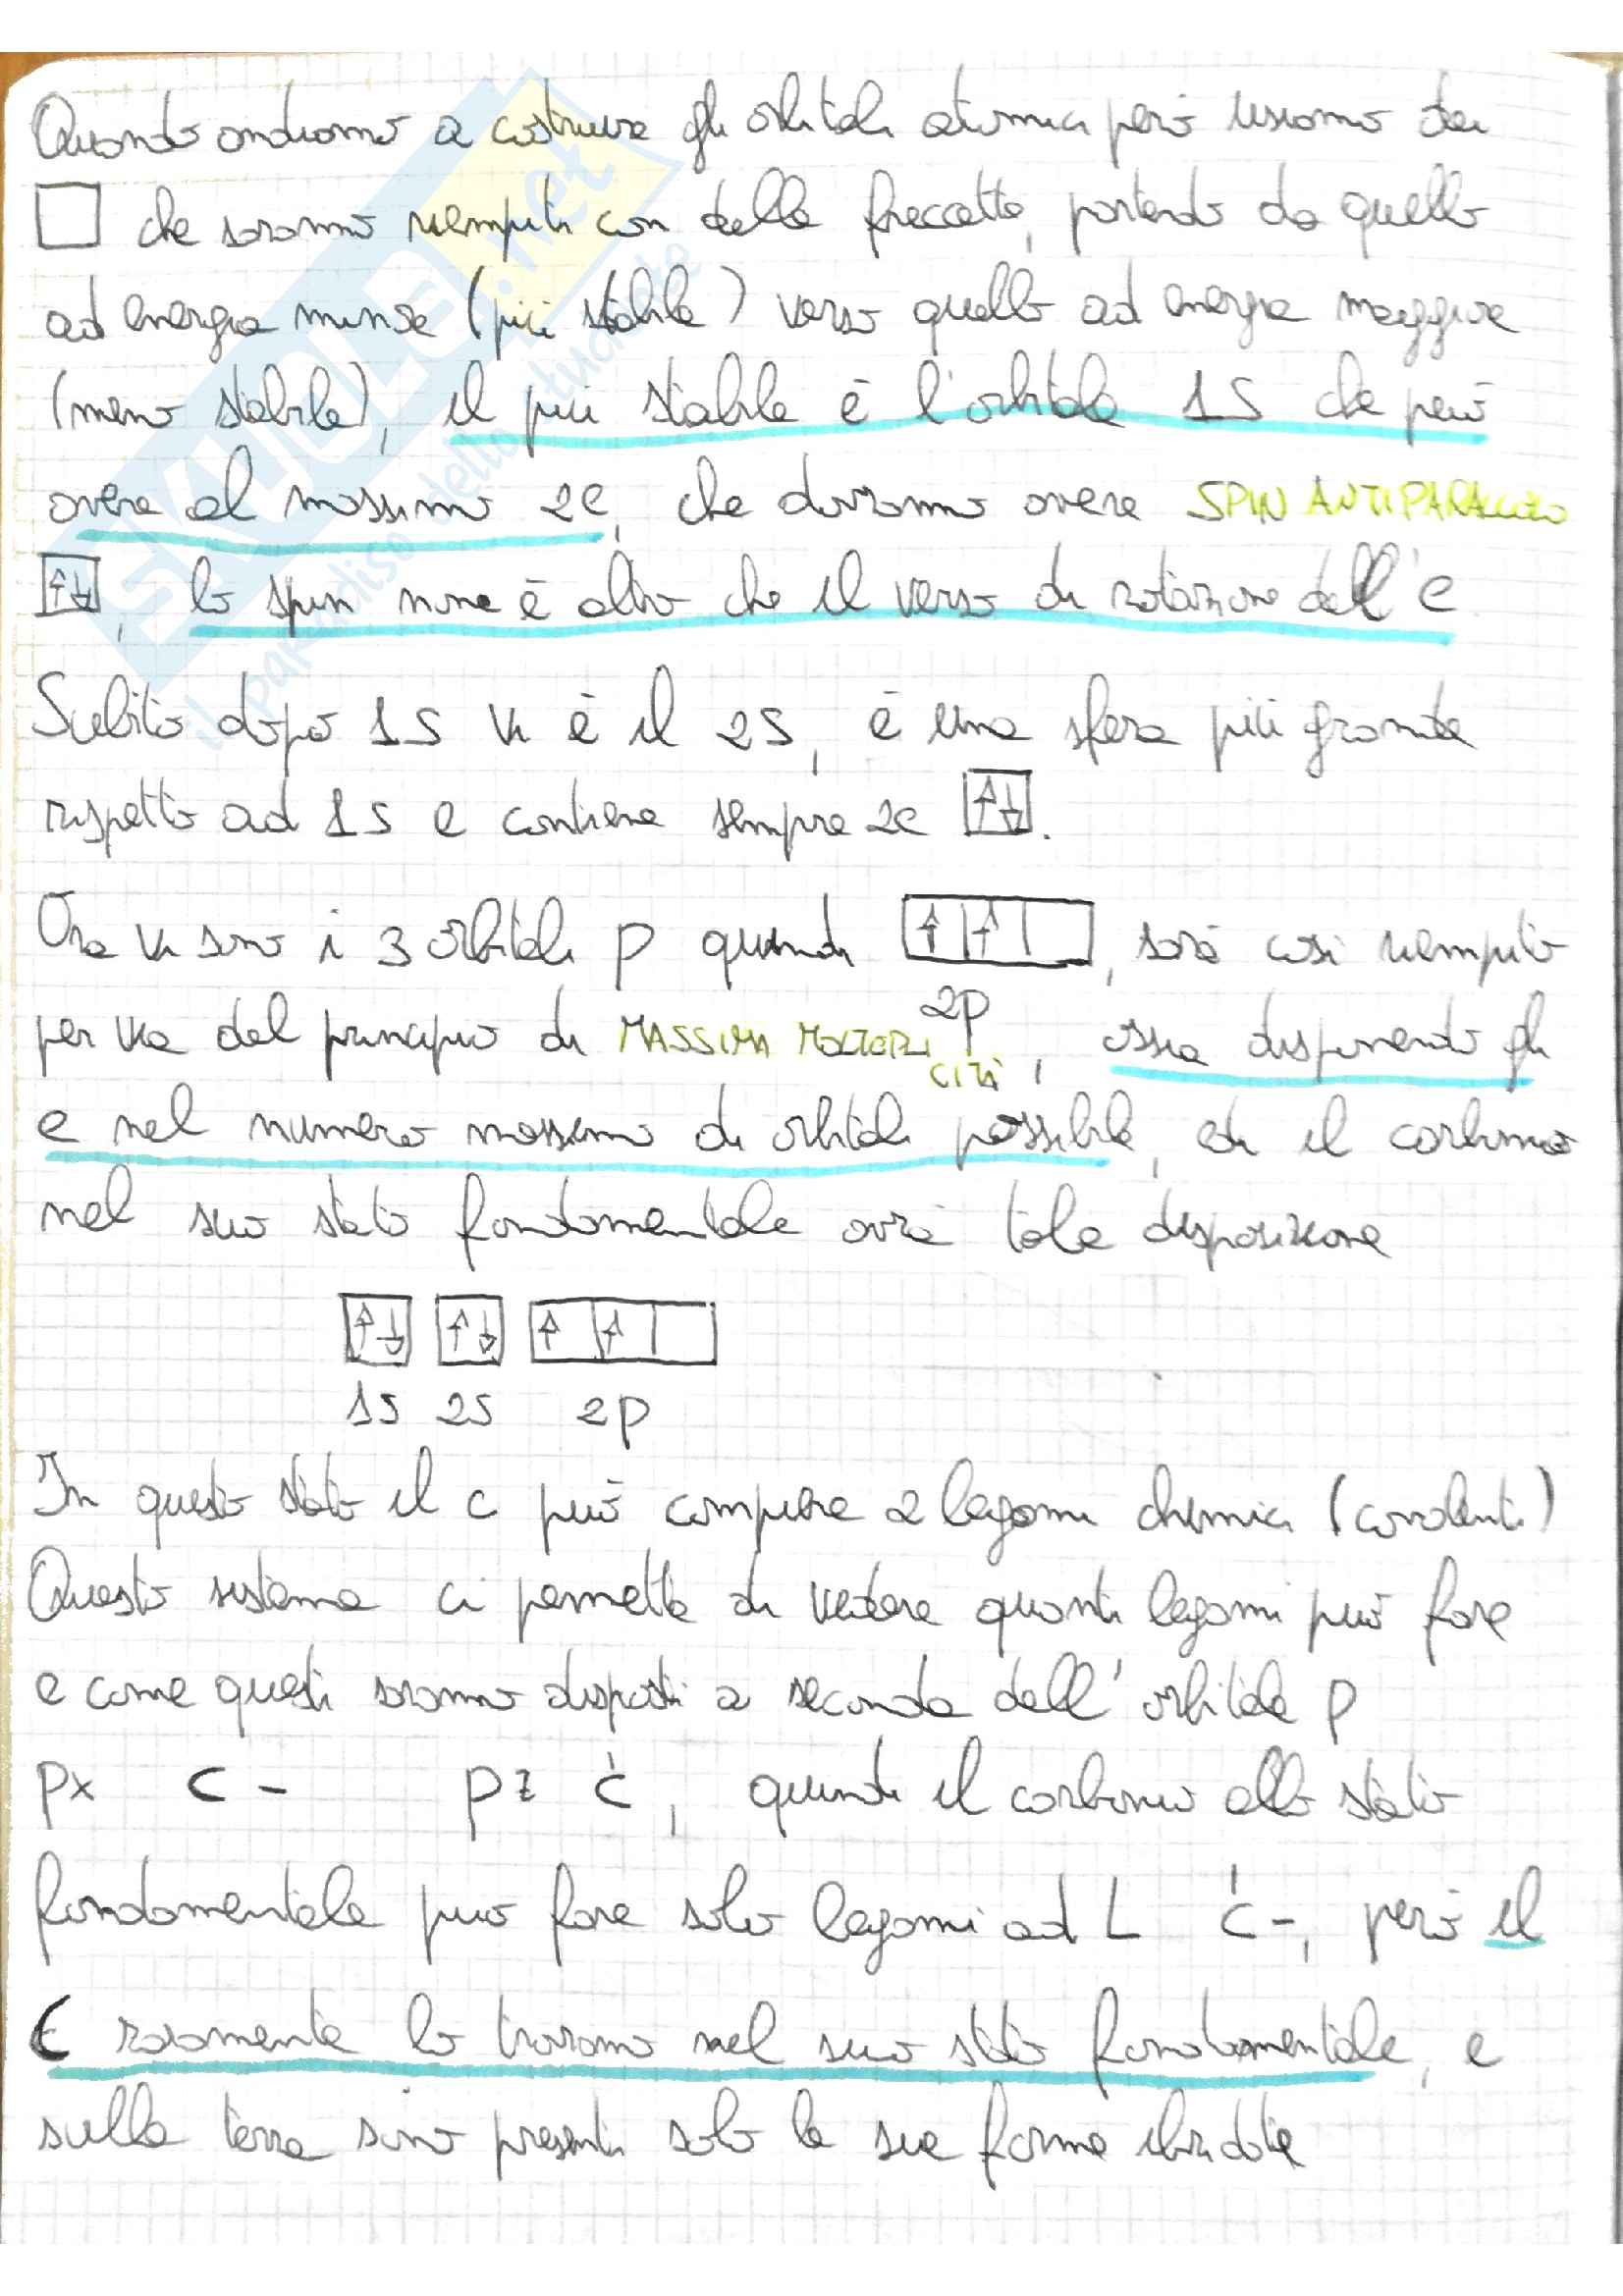 Quando andiamo a costruire gli orbitali atomici però usiamo dei
□ che saranno riempiti con delle freccette, partendo da quello
ad energia minore (più stabile) verso quello ad energia maggiore
(meno stabile), il più stabile è l'orbitale 1S che può
avere al massimo 2e, che dovranno avere SPIN ANTIPARALLELO
↑↓, lo spin none è altro che il verso di rotazione dell'e
Subito dopo 1S vi è il 2S, è una sfera più grande
rispetto ad 1S e contiene sempre 2e ↑↓.
Ora vi sono i 3 orbitali p quindi ↑ ↑, sarà così riempito
2p
per via del principio di MASSIMA MOLTEPLI
CITÀ, ossia disponendo gli
e nel numero massimo di orbitali possibile, il carbonio
nel suo stato fondamentale avrà tale disposizione
↑↓ ↑↓ ↑ ↑
1S 2S 2p
In questo stato il c può compiere 2 legami chimici (covalenti)
Questo sistema ci permette di vedere quanti legami può fare
e come questi saranno disposti a seconda dell'orbitale p
px C - pz Ċ, quindi il carbonio allo stato
fondamentale può fare solo legami ad L Ċ-, però il
C raramente lo troviamo nel suo stato fondamentale, e
sulla terra sono presenti solo le sue forme ibridate
SKUOLA.net
il paradiso dello studente